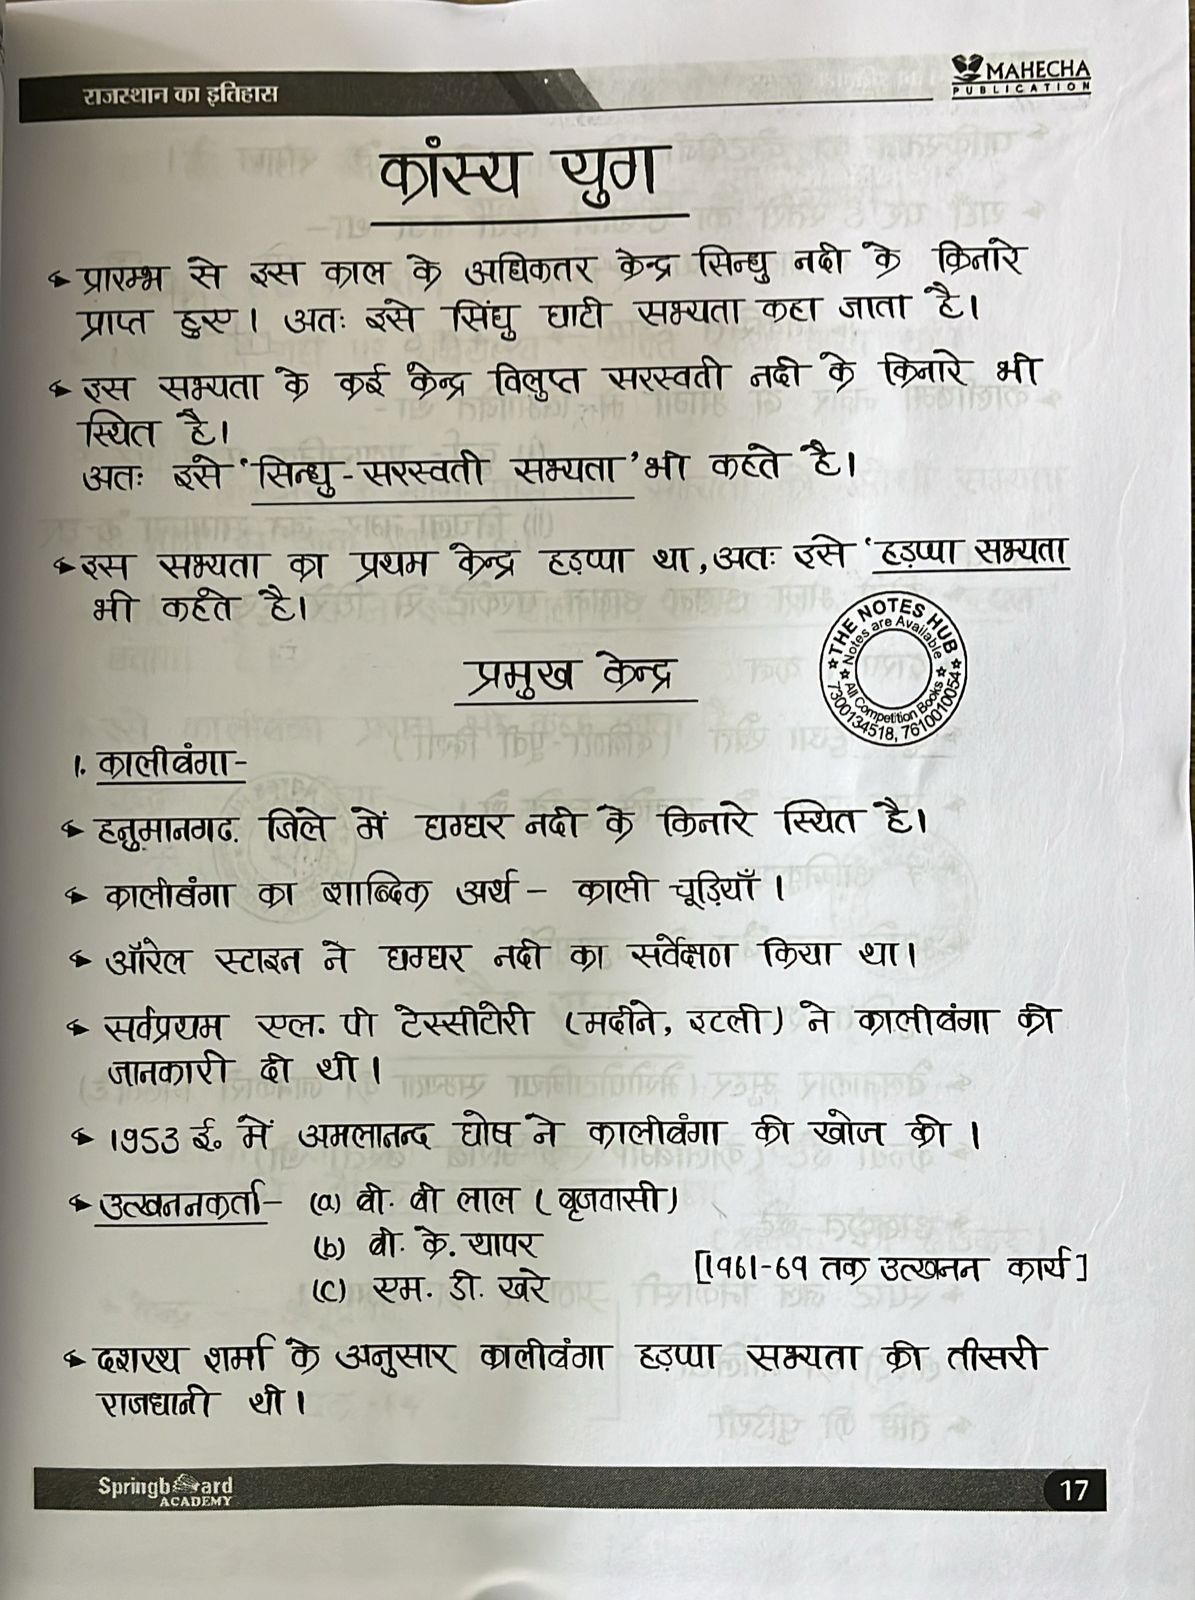 राजस्थान का इतिहास
MAHECHA
PUBLICATION
कांस्य युग
प्रारम्भ से इस काल के अधिकतर केन्द्र सिन्धु नदी के किनारे
प्राप्त हुए। अतः इसे सिंधु घाटी सभ्यता कहा जाता है।
इस सभ्यता के कई केन्द्र विलुप्त सरस्वती नदी के किनारे भी
स्थित है।
अतः इसे 'सिन्धु-सरस्वती सभ्यता' भी कहते है।
इस सभ्यता का प्रथम केन्द्र हड़प्पा था, अतः इसे 'हड़प्पा सभ्यता
भी कहते है।
THE NOTES HUB
Notes are Available
All Competition Books
7300134518, 7610010054
प्रमुख केन्द्र
1. कालीबंगा-
हनुमानगढ़ जिले में घग्घर नदी के किनारे स्थित है।
कालीबंगा का शाब्दिक अर्थ - काली चूड़ियाँ।
ऑरेल स्टाइन ने घग्घर नदी का सर्वेक्षण किया था।
सर्वप्रथम एल. पी टेस्सीटोरी (मदीने, इटली) ने कालीबंगा की
जानकारी दी थी।
1953 ई. में अमलानन्द घोष ने कालीबंगा की खोज की।
उत्खननकर्ता- (a) बी. बी लाल (बृजवासी)
(b) बी. के. थापर
[1961-69 तक उत्खनन कार्य]
(c) एम. डी. खरे
दशरथ शर्मा के अनुसार कालीबंगा हड़प्पा सभ्यता की तीसरी
राजधानी थी।
Springboard
ACADEMY
17